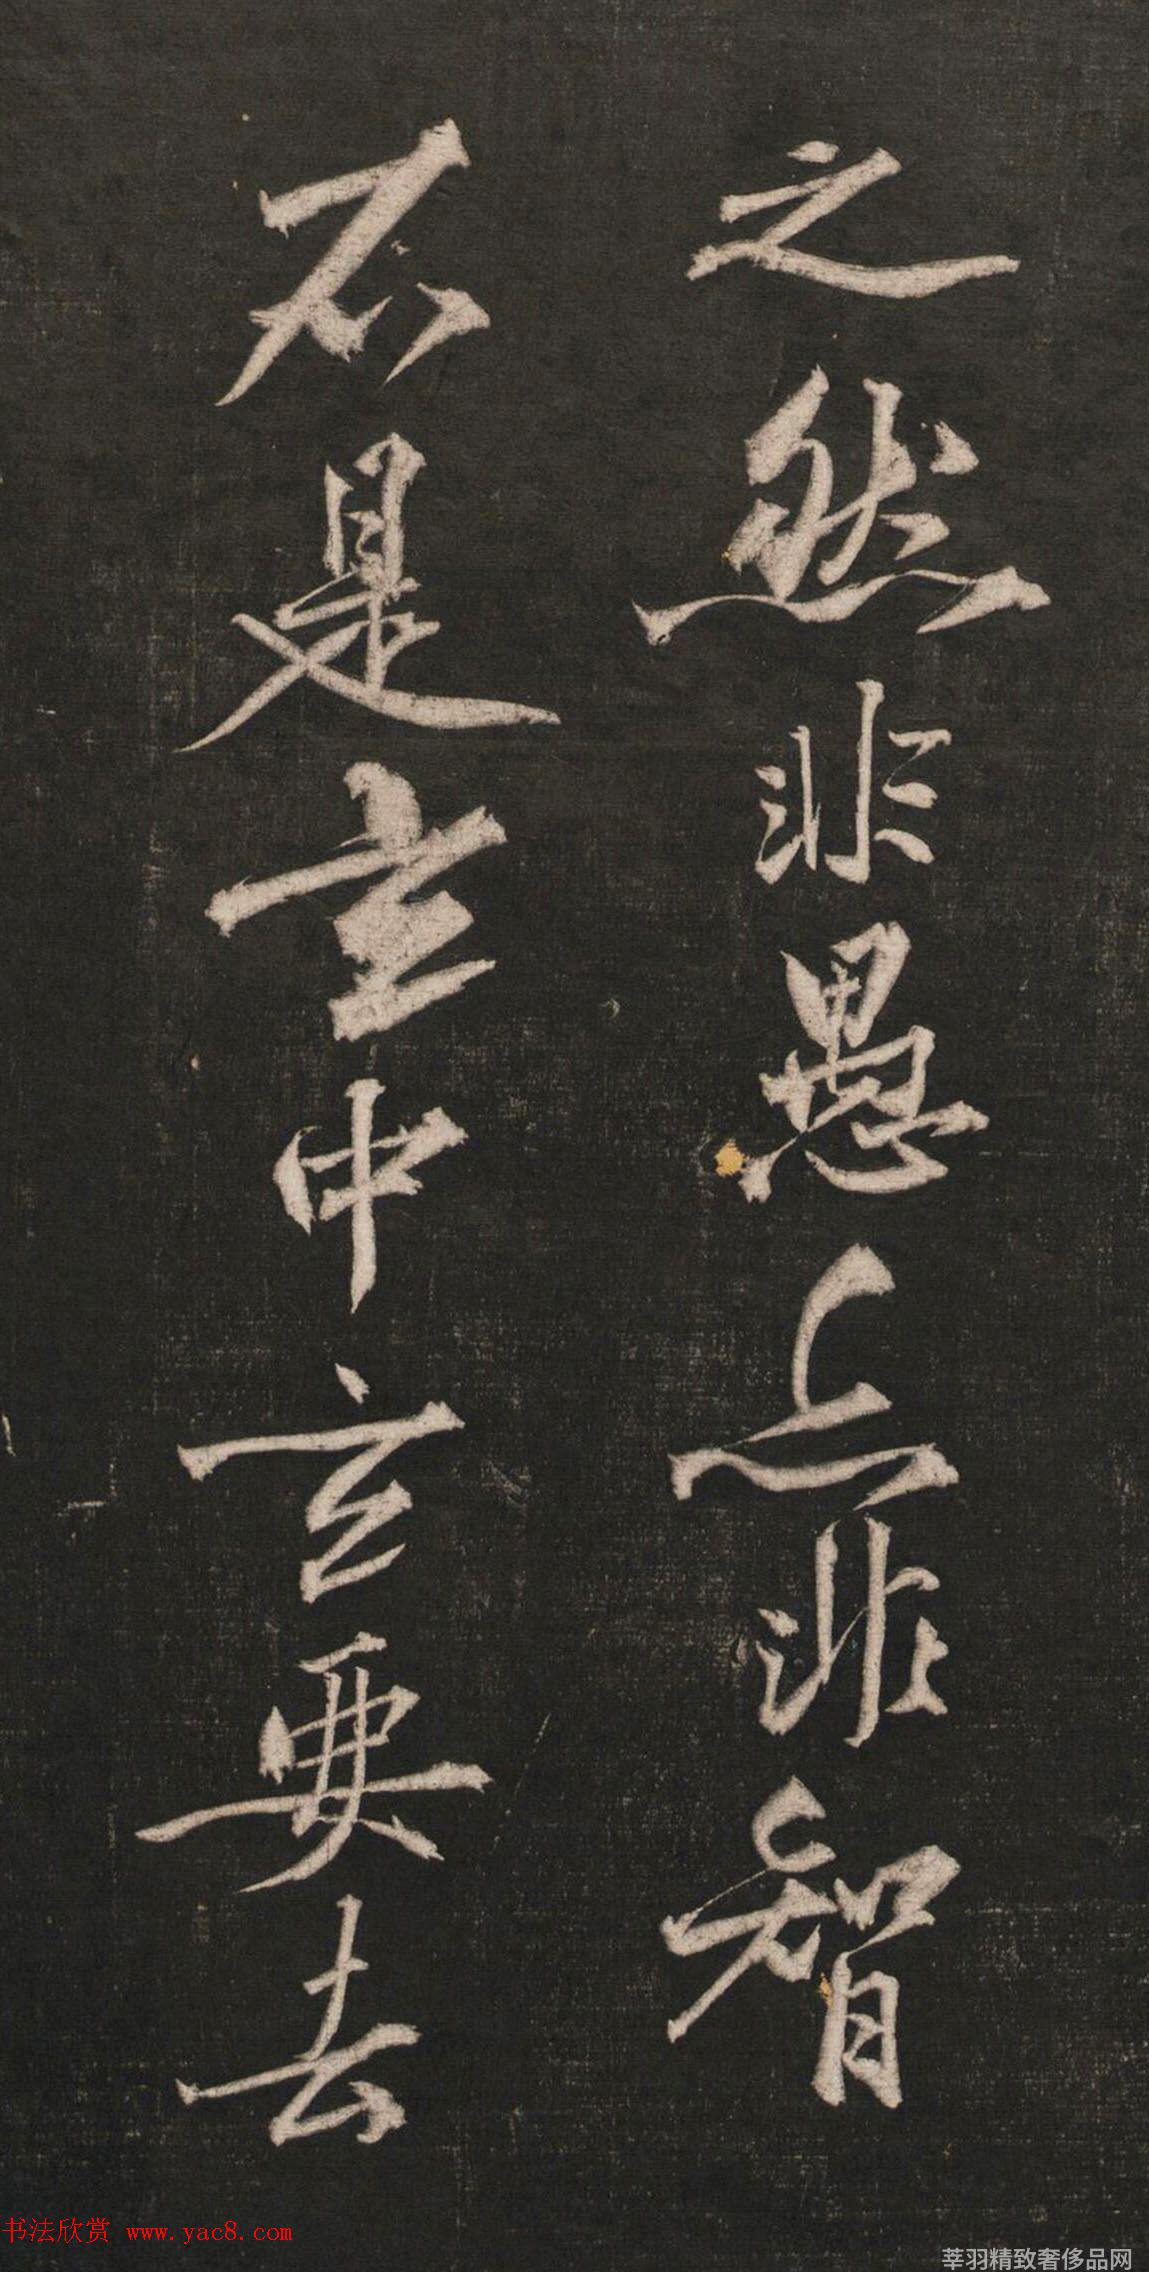 之然非愚上非智
不是玄中玄要去
书法欣赏 www.yac8.com
莘羽精致奢侈品网